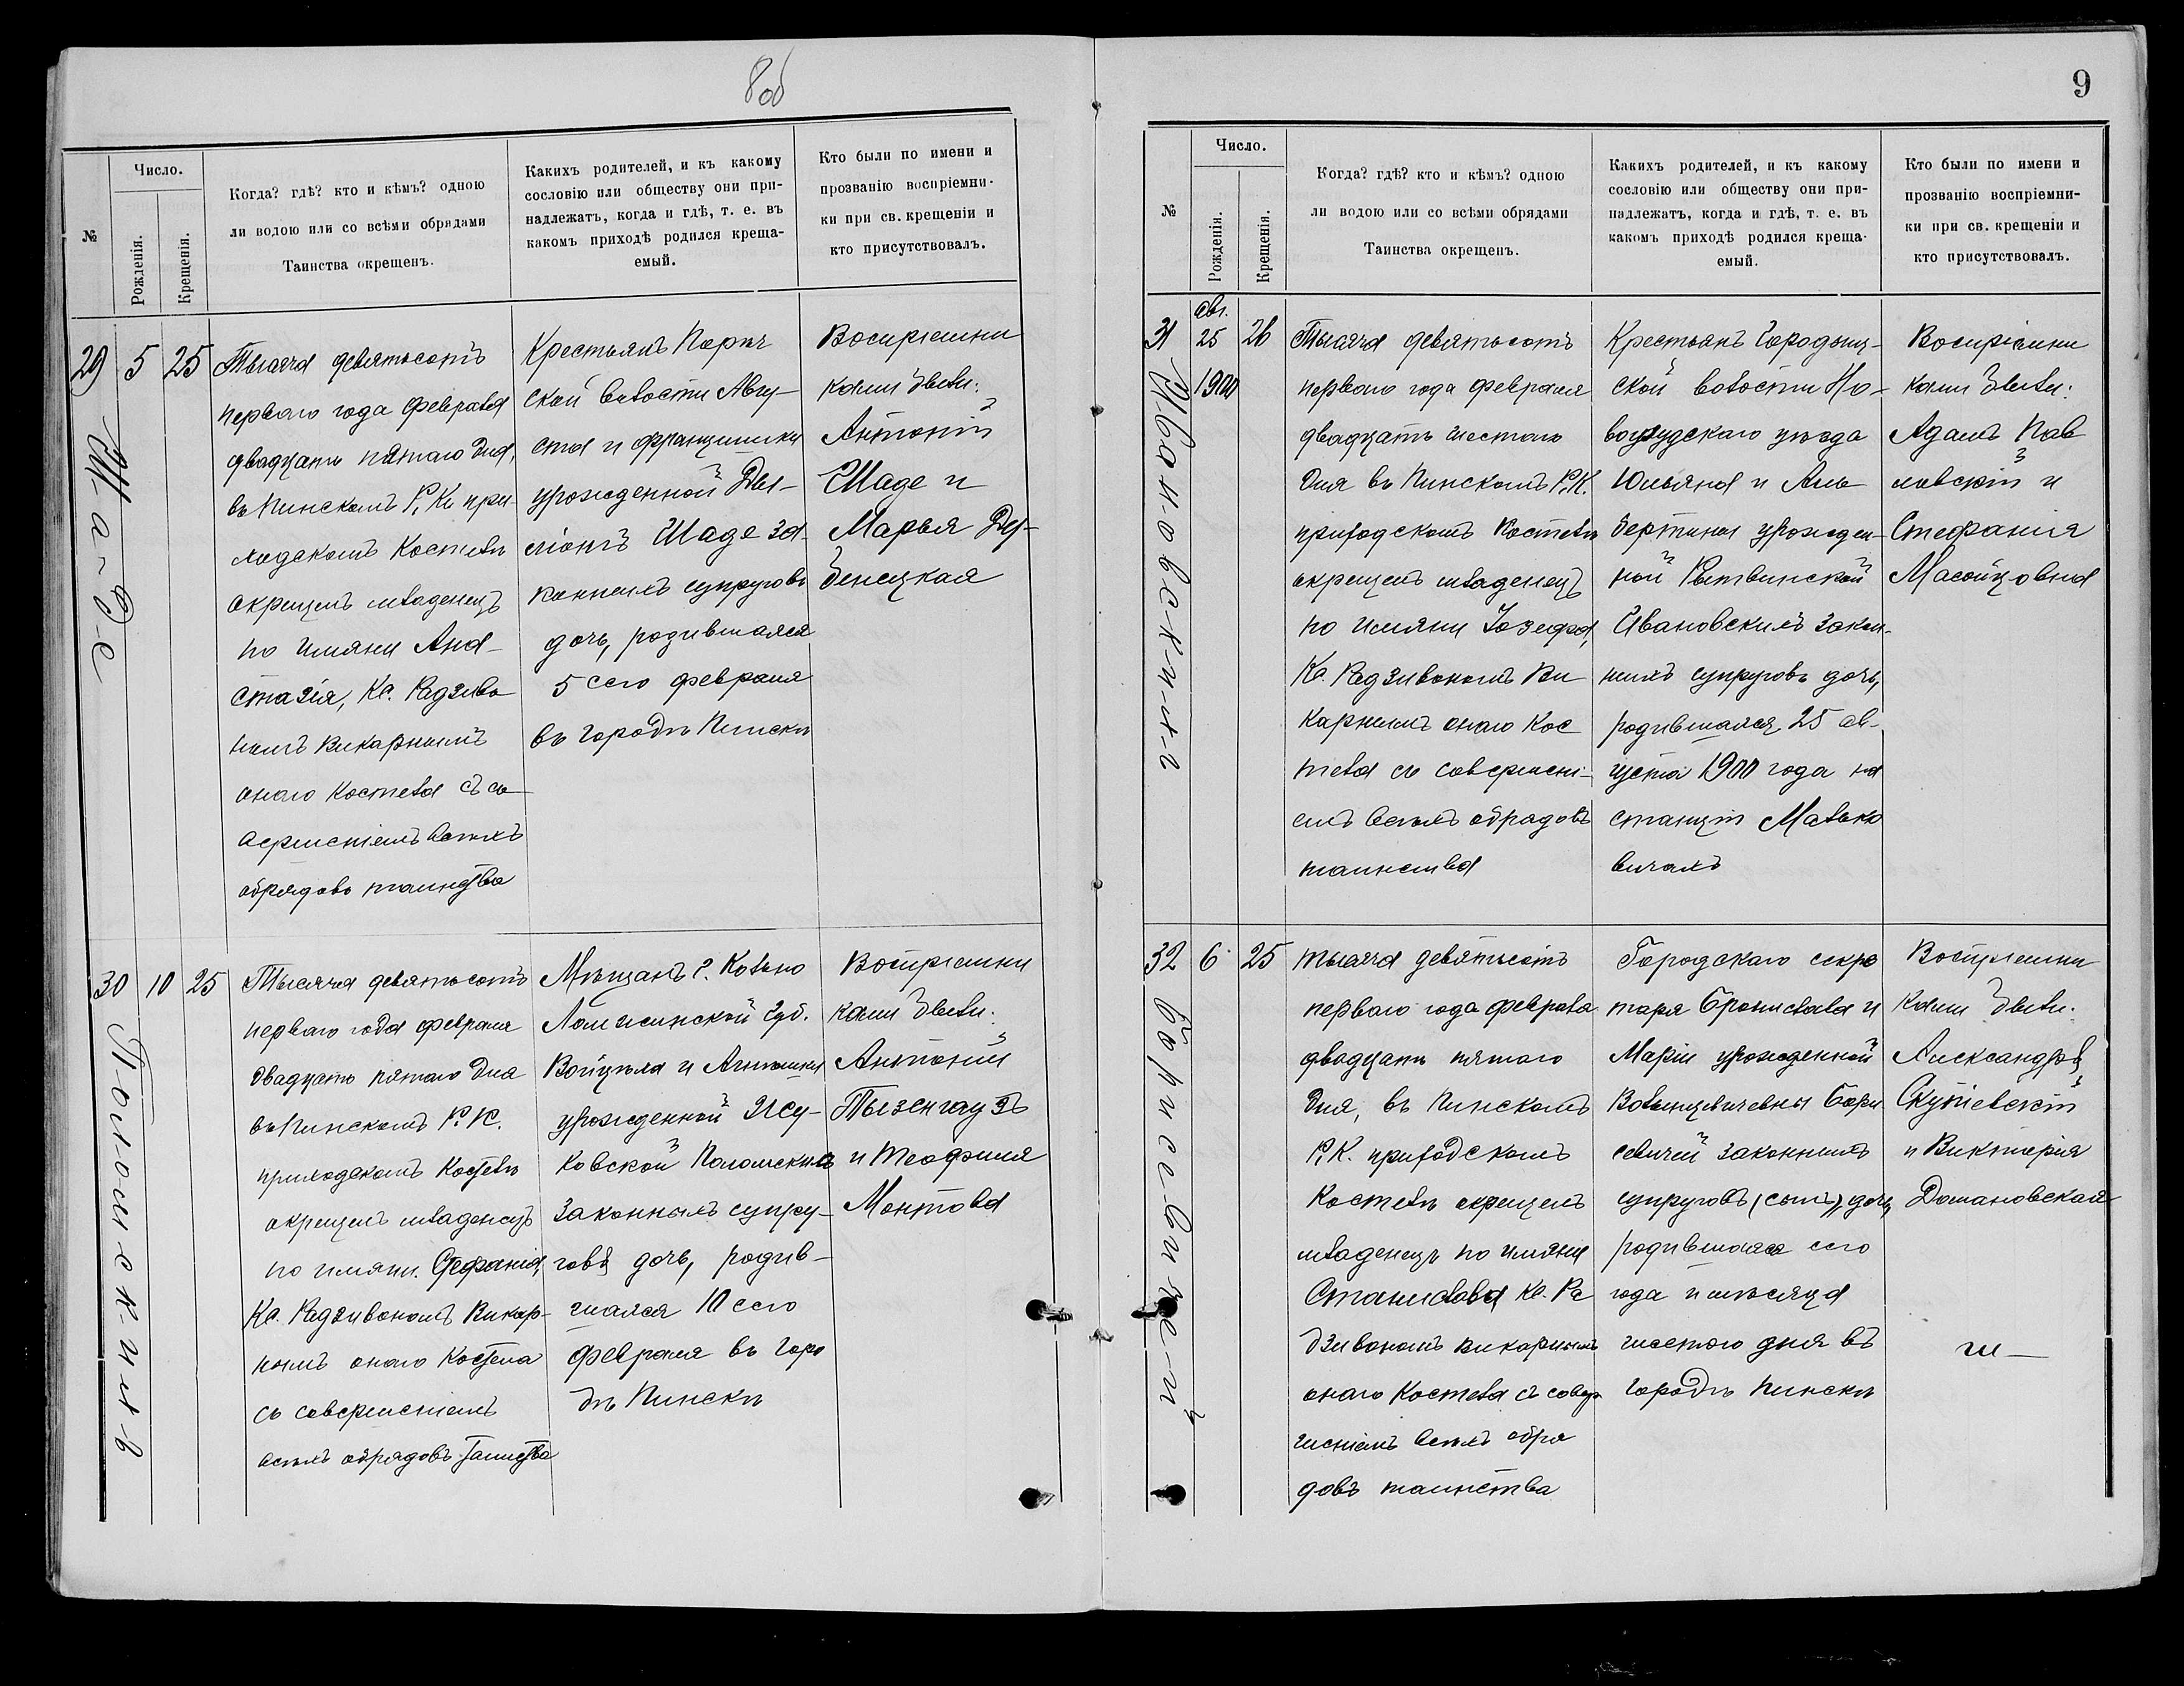 8об
№
Число.
Рожденія.
Крещенія.
Когда? гдѣ? кто и кѣмъ? одною
ли водою или со всѣми обрядами
Таинства окрещенъ.
Какихъ родителей, и къ какому
сословію или обществу они при-
надлежатъ, когда и гдѣ, т. е. въ
какомъ приходѣ родился креща-
емый.
Кто были по имени и
прозванію воспріемни-
ки при св. крещеніи и
кто присутствовалъ.
29
5
25
Шаде
Тысяча девятьсотъ
перваго года Февраля
двадцать пятаго дня,
въ Пинскомъ Р. К. при-
ходскомъ Костелѣ
окрещенъ младенецъ
по имяни Ана-
стазія, Кс. Радзиво
номъ викарнымъ
онаго Костела съ со
вершеніемъ всѣхъ
обрядовъ таинства
Крестьянъ
ской волости Авгу-
ста и Францишки
урожденной
Шаде за-
конныхъ супруговъ
дочь, родившаяся
5 сего февраля
въ городѣ Пинскѣ
Воспріемни
ками были:
Антоній
Шаде и
Марья
30
10
25
Тысяча девятьсотъ
перваго года февраля
двадцать пятаго дня
въ Пинскомъ Р. К.
приходскомъ Костелѣ
окрещенъ младенецъ
по имяни Стефанія,
Кс. Радзивономъ Викар-
нымъ онаго Костела
съ совершеніемъ
всѣхъ обрядовъ Таинства
Мѣщанъ г. Кольно
Ломжинской Губ.
урожденной
ковской
законныхъ супру-
говъ дочь, родив-
шаяся 10 сего
февраля въ горо
дѣ Пинскѣ
Воспріемни
ками были:
Антоній
Тызенгаузъ
и Теофиля
Монтовла
9
№
Число.
Рожденія.
Крещенія.
Когда? гдѣ? кто и кѣмъ? одною
ли водою или со всѣми обрядами
Таинства окрещенъ.
Какихъ родителей, и къ какому
сословію или обществу они при-
надлежатъ, когда и гдѣ, т. е. въ
какомъ приходѣ родился креща-
емый.
Кто были по имени и
прозванію воспріемни-
ки при св. крещеніи и
кто присутствовалъ.
31
авг.
25
1900
26
Тысяча девятьсотъ
перваго года февраля
двадцать шестаго
дня въ Пинскомъ Р. К.
приходскомъ Костелѣ
окрещенъ младенецъ
по имяни Іозефа,
Кс. Радзивономъ Ви
карнымъ онаго Кос
тела съ совершені-
емъ всѣхъ обрядовъ
таинства
Крестьянъ Городыщ-
ской волости Но-
вогрудскаго уѣзда
Юльяна и Аль
бертины урожден-
ной Рытвинской
Ивановскихъ закон-
ныхъ супруговъ дочь,
родившаяся 25 ав-
густа 1900 года на
станціи Малько
вичахъ
Воспріемни
ками были:
Адамъ Пав
ловскій и
Стефанія
32
6
25
Борисевичей
тысяча девятьсотъ
перваго года февраля
двадцать пятаго
дня, въ Пинскомъ
Р. К. приходскомъ
Костелѣ окрещенъ
младенецъ по имяни
Станислава Кс. Ра
дзивономъ викарнымъ
онаго Костела съ совер
шеніемъ всѣхъ обря
довъ таинства
Городскаго секре
таря Бронислава и
Маріи урожденной
Бори
севичей законныхъ
супруговъ (сынъ), дочь,
родившаяся сего
года и мѣсяца
шестого дня въ
городѣ Пинскѣ
Воспріемни
ками были:
Александръ
и Викторія
Домановская